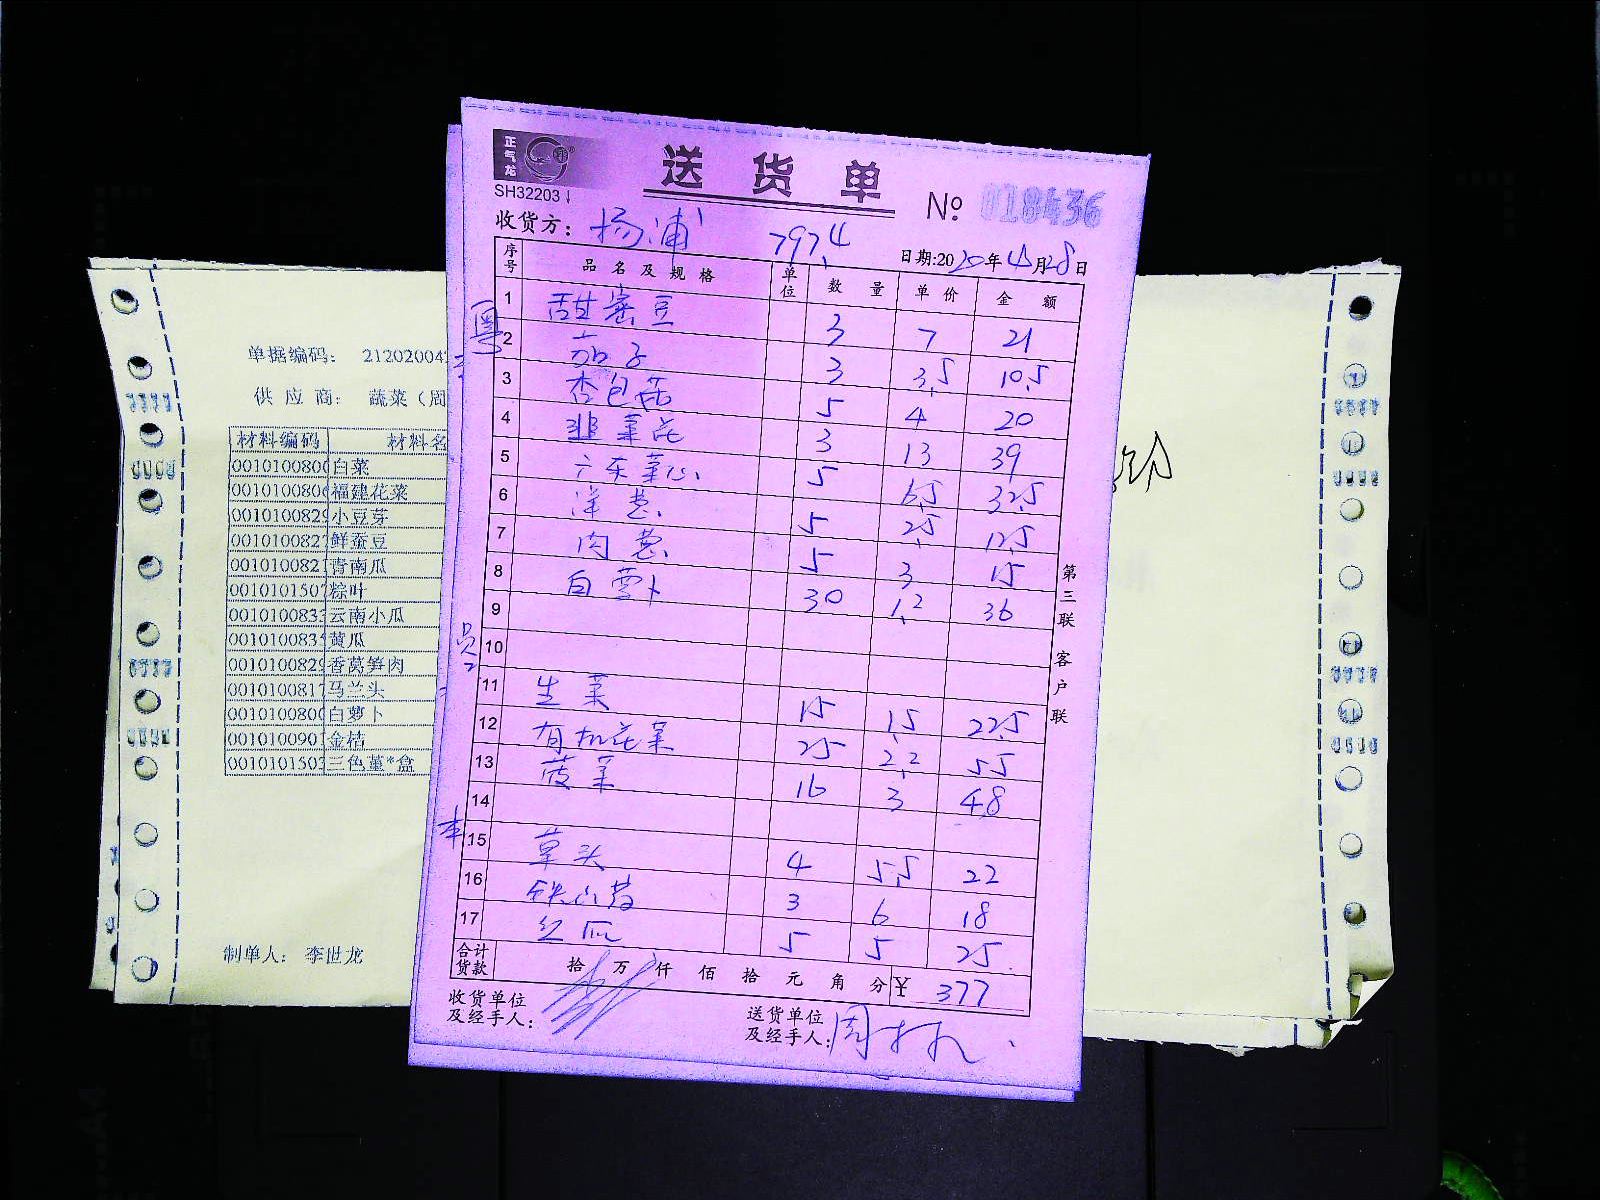 正气龙
送货单
SH32203
№ 018436
收货方: 杨浦 797.4
日期:2020年4月28日
序号 品名及规格 单位 数量 单价 金额
1 甜蜜豆 3 7 21
2 茄子 3 3.5 10.5
3 杏包菇 5 4 20
4 韭菜花 3 13 39
5 广东菜心 5 6.5 32.5
6 洋葱 5 2.5 12.5
7 肉葱 5 3 15
8 白萝卜 30 1.2 36
9
10
11 生菜 15 1.5 22.5
12 有机花菜 25 2.2 55
13 菠菜 16 3 48
14
15 草头 4 5.5 22
16 铁山药 3 6 18
17 红瓜 5 5 25
合计货款 拾万仟佰拾元角分 ¥ 377
收货单位及经手人:
送货单位及经手人:
第三联 客户联
单据编码: 21202004
供应商: 蔬菜(周
材料编码 材料名
0010100800 白菜
001010080 福建花菜
001010082 小豆芽
001010082 鲜蚕豆
001010082 青南瓜
001010150 粽叶
001010083 云南小瓜
001010083 黄瓜
001010082 香莴笋肉
001010081 马兰头
001010080 白萝卜
001010090 金桔
001010150 三色堇*盒
制单人: 李世龙